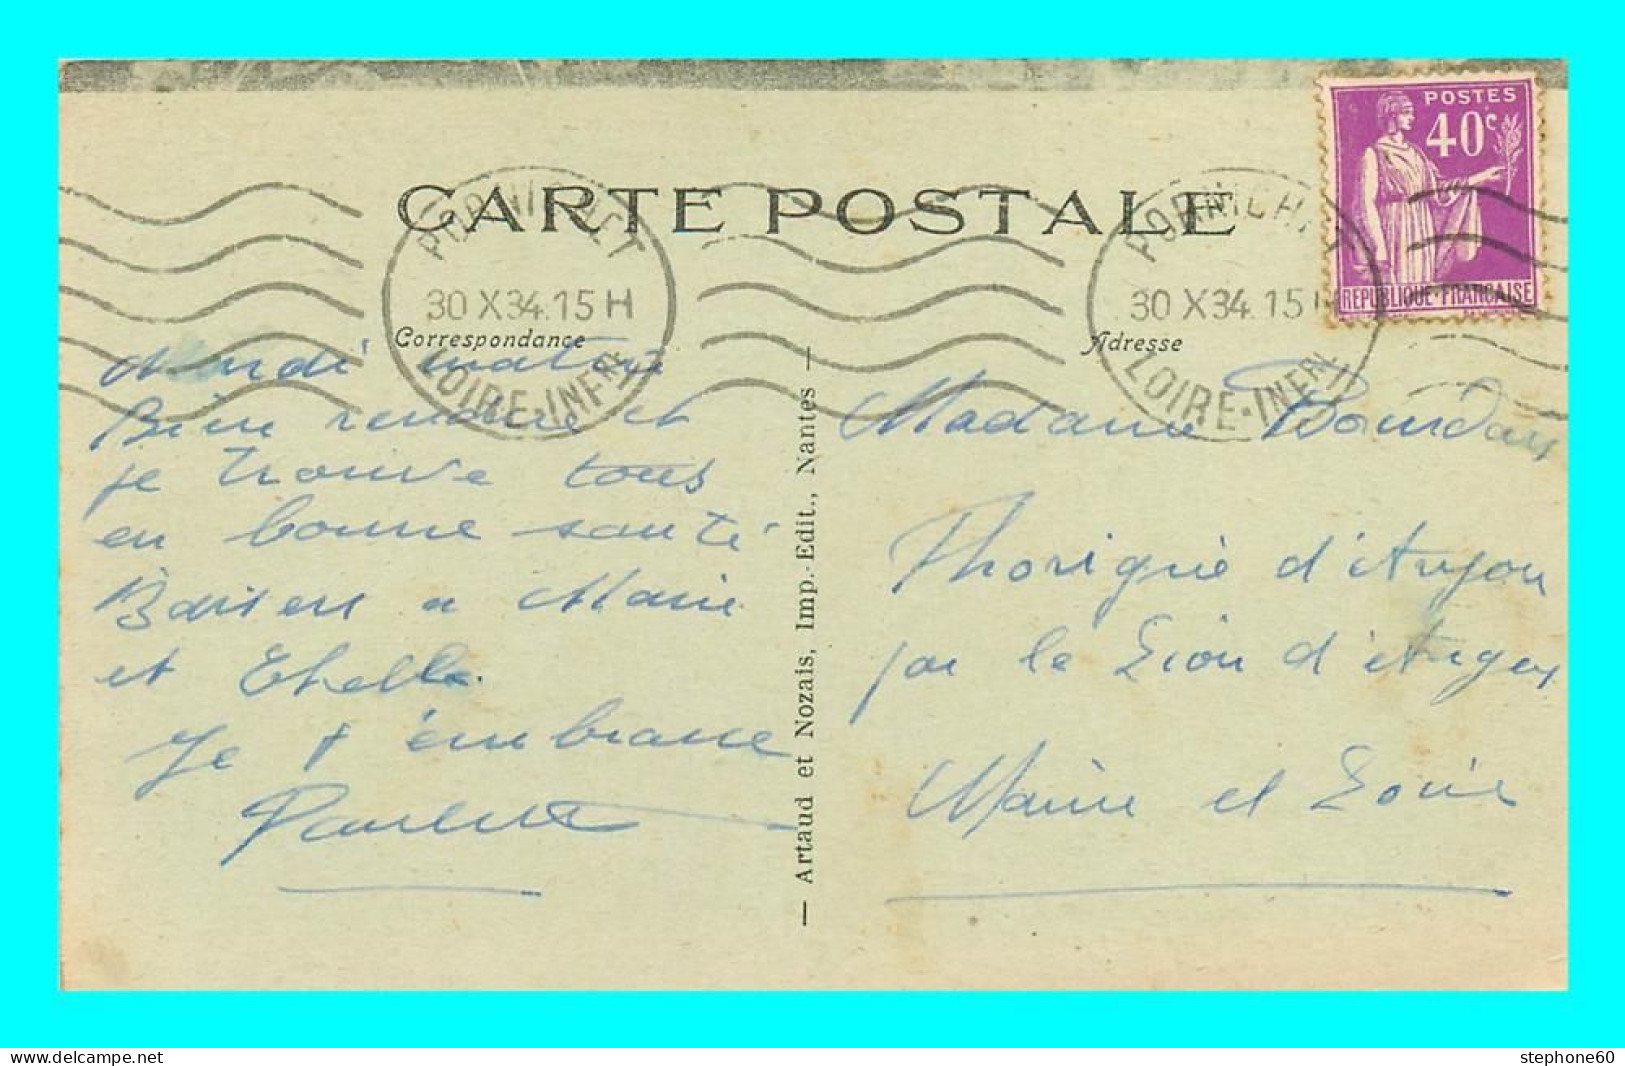 POSTES
40c
REPUBLIQUE·FRANCAISE
CARTE POSTALE
PORNICHET
30 X 34.15 H
LOIRE-INFRE
PORNICHET
30 X 34.15 H
LOIRE-INFRE
Correspondance
Adresse
matin
Bien rendue et
je trouve tous
en bonne santé
Baisers a Marie
et
Je t'embrasse
— Artaud et Nozais, Imp.-Edit., Nantes —
Madame
Thorigné d'Anjou
par le Lion d'Angers
Maine et Loire
stephone60